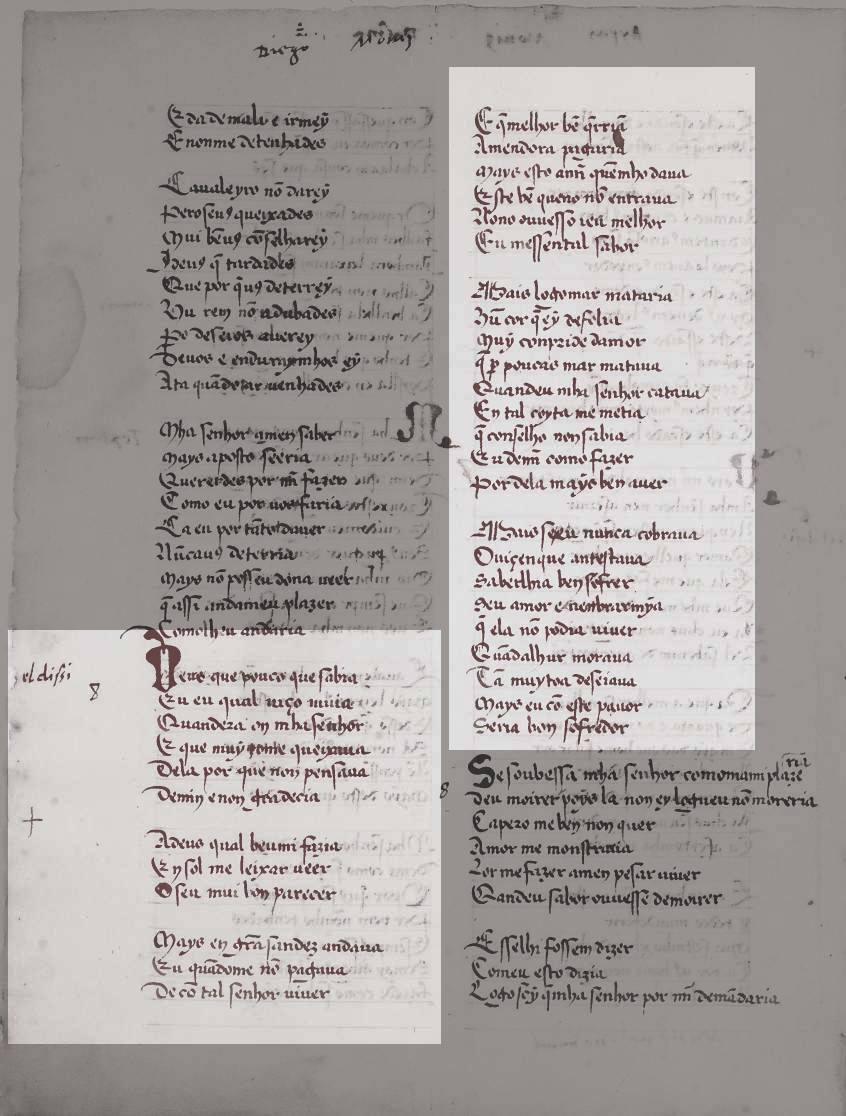 Diego
E da de mal e irmey
E nonme detenhades
Caualeyro nõ darey
Pero seus queixades
Mui beuꝯ cõselharey
Deuꝯ q̄ tardades
Que por q̄uꝯ deterrey
Hu rem nõ adubades
Ata quãdo tar uenhades
Mha senhor amen saber
mays aposto seeria
Quererdes por mi fazer
Como eu por uos faria
Ca eu por tãto dauer
Nũcauꝯ deterria
Mays nõ poss eu dona ueer
q̄ assi andameu plazer
Comolheu andaria
el dissi
8
Deus que pouco que sabia
Eu eu qual uiço uiuia
Quandera on mha senhor
E que muy forte queixaua
Dela por que non pensaua
Demin e non gradecia
Adeus qual beumi fazia
En sol me leixar ueer
O seu mui bõn parecer
Mays en grã sandez andaua
Eu quãdome nõ pagaua
De cõ tal senhor uiuer
E q̄ melhor bẽ q̄rria
Amendora pagaria
Mays esto
Este bẽ quero nõ entraua
Nono ouuesso iea melhor
Eu messental sabor
Mais logomar mataria
Hũ cor q̄ ey de folia
Muy conpride damor
q̄ ꝑ poucas mar mataua
Quandeu mha senhor cataua
En tal coyta me metia
q̄ conselho non sabia
Eu demi como fazer
Por dela mays ben auer
Mais seeu nunca cobraua
O uiçenque antestaua
Saberlhia ben sofrer
Seu amor e nenbrarmya
q̄ ela nõ podia uiuer
Guadalhur moraua
Tã muytoa deseiaua
Mays eu cõ este pauor
Seria bon sofredor
8
Se soubessa mha senhor comomami plazeria
Deu moirer poys la non ey logueu nõ moreria
Ca pero me ben non quer
Amor me monstraria
Por me fazer amen pesar uiuer
Quandeu sabor ouuesse demoirer
E sselhi fossem dizer
Comeu esto dizia
Logo sey q̄ mha senhor por mi demãdaria